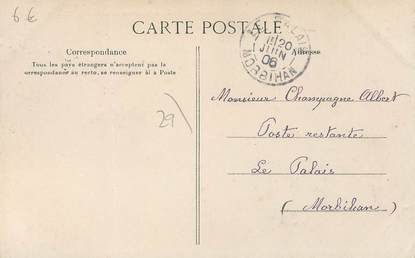 6 €
CARTE POSTALE
Correspondance
Tous les pays étrangers n'acceptent pas la
correspondance au recto, se renseigner à la Poste
Adresse
LE PALAIS
20
JUIN
06
MORBIHAN
29
Monsieur Champagne Albert
Poste restante
Le Palais
(Morbihan)